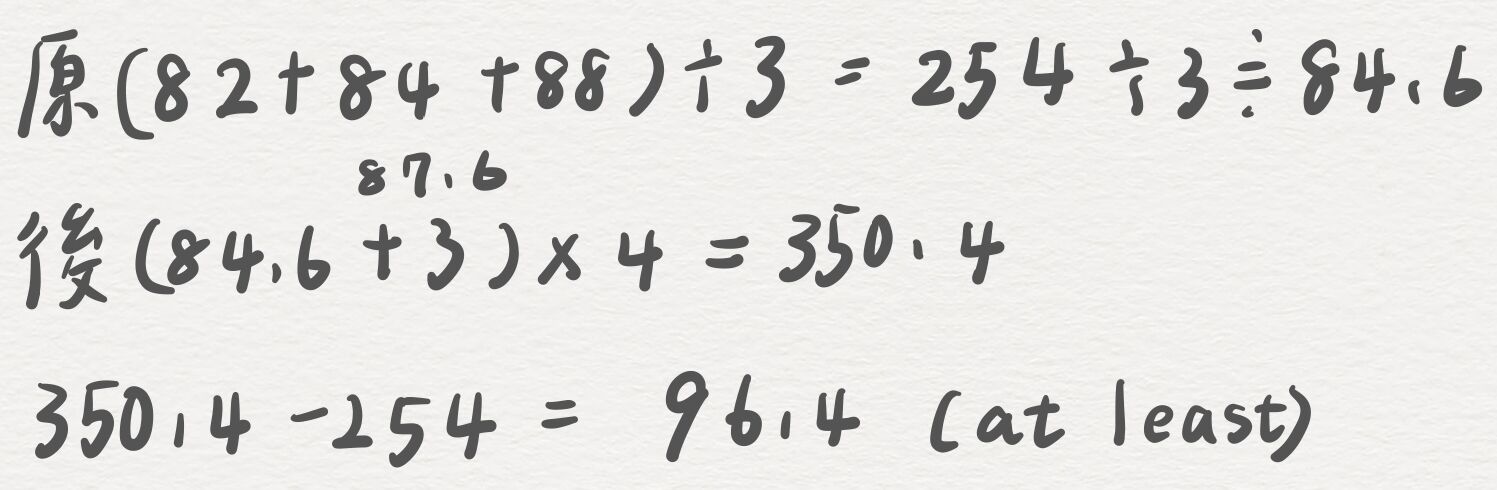 原(82+84+88)÷3=254÷3≑84.6
87.6
後(84.6+3)×4=350.4
350.4-254= 96.4 (at least)